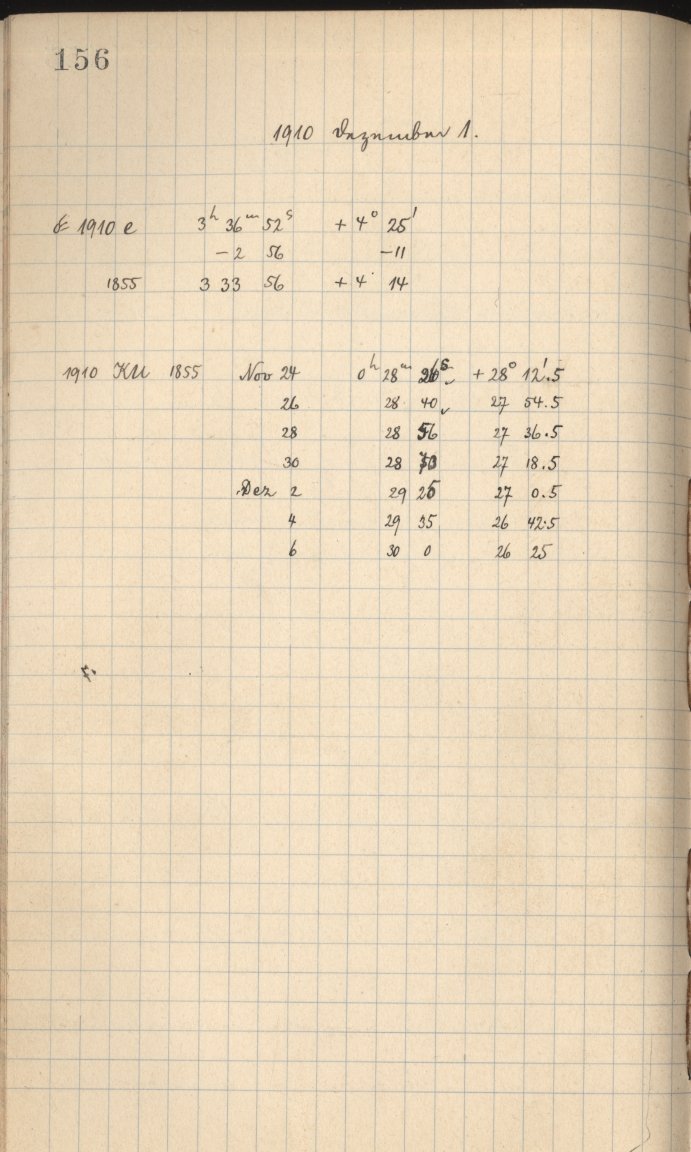 156
1910 Dezember 1.
1910 e 3ʰ 36ᵐ 52ˢ + 4° 25'
− 2 56 −11
1855 3 33 56 + 4° 14
1910 KU 1855 Nov 24 0ʰ 28ᵐ + 28° 12'.5
26 28 40 27 54.5
28 28 56 27 36.5
30 28 27 18.5
Dez 2 29 25 27 0.5
4 29 35 26 42.5
6 30 0 26 25